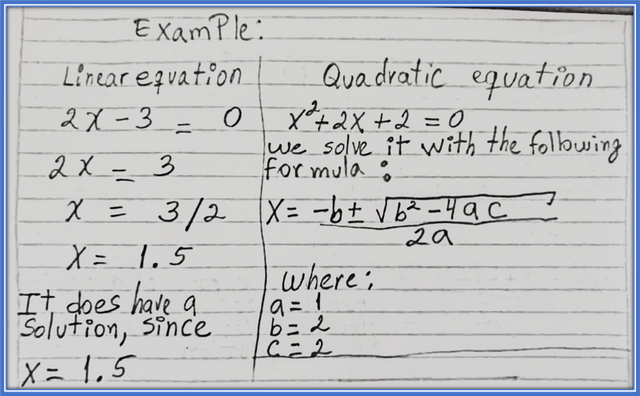 Example:
Linear equation
2x - 3 = 0
2x = 3
x = 3/2
x = 1.5
It does have a
solution, since
x = 1.5
Quadratic equation
x²+2x+2=0
we solve it with the following
formula:
x = -b± √b² -4ac
2a
where:
a = 1
b = 2
c = 2